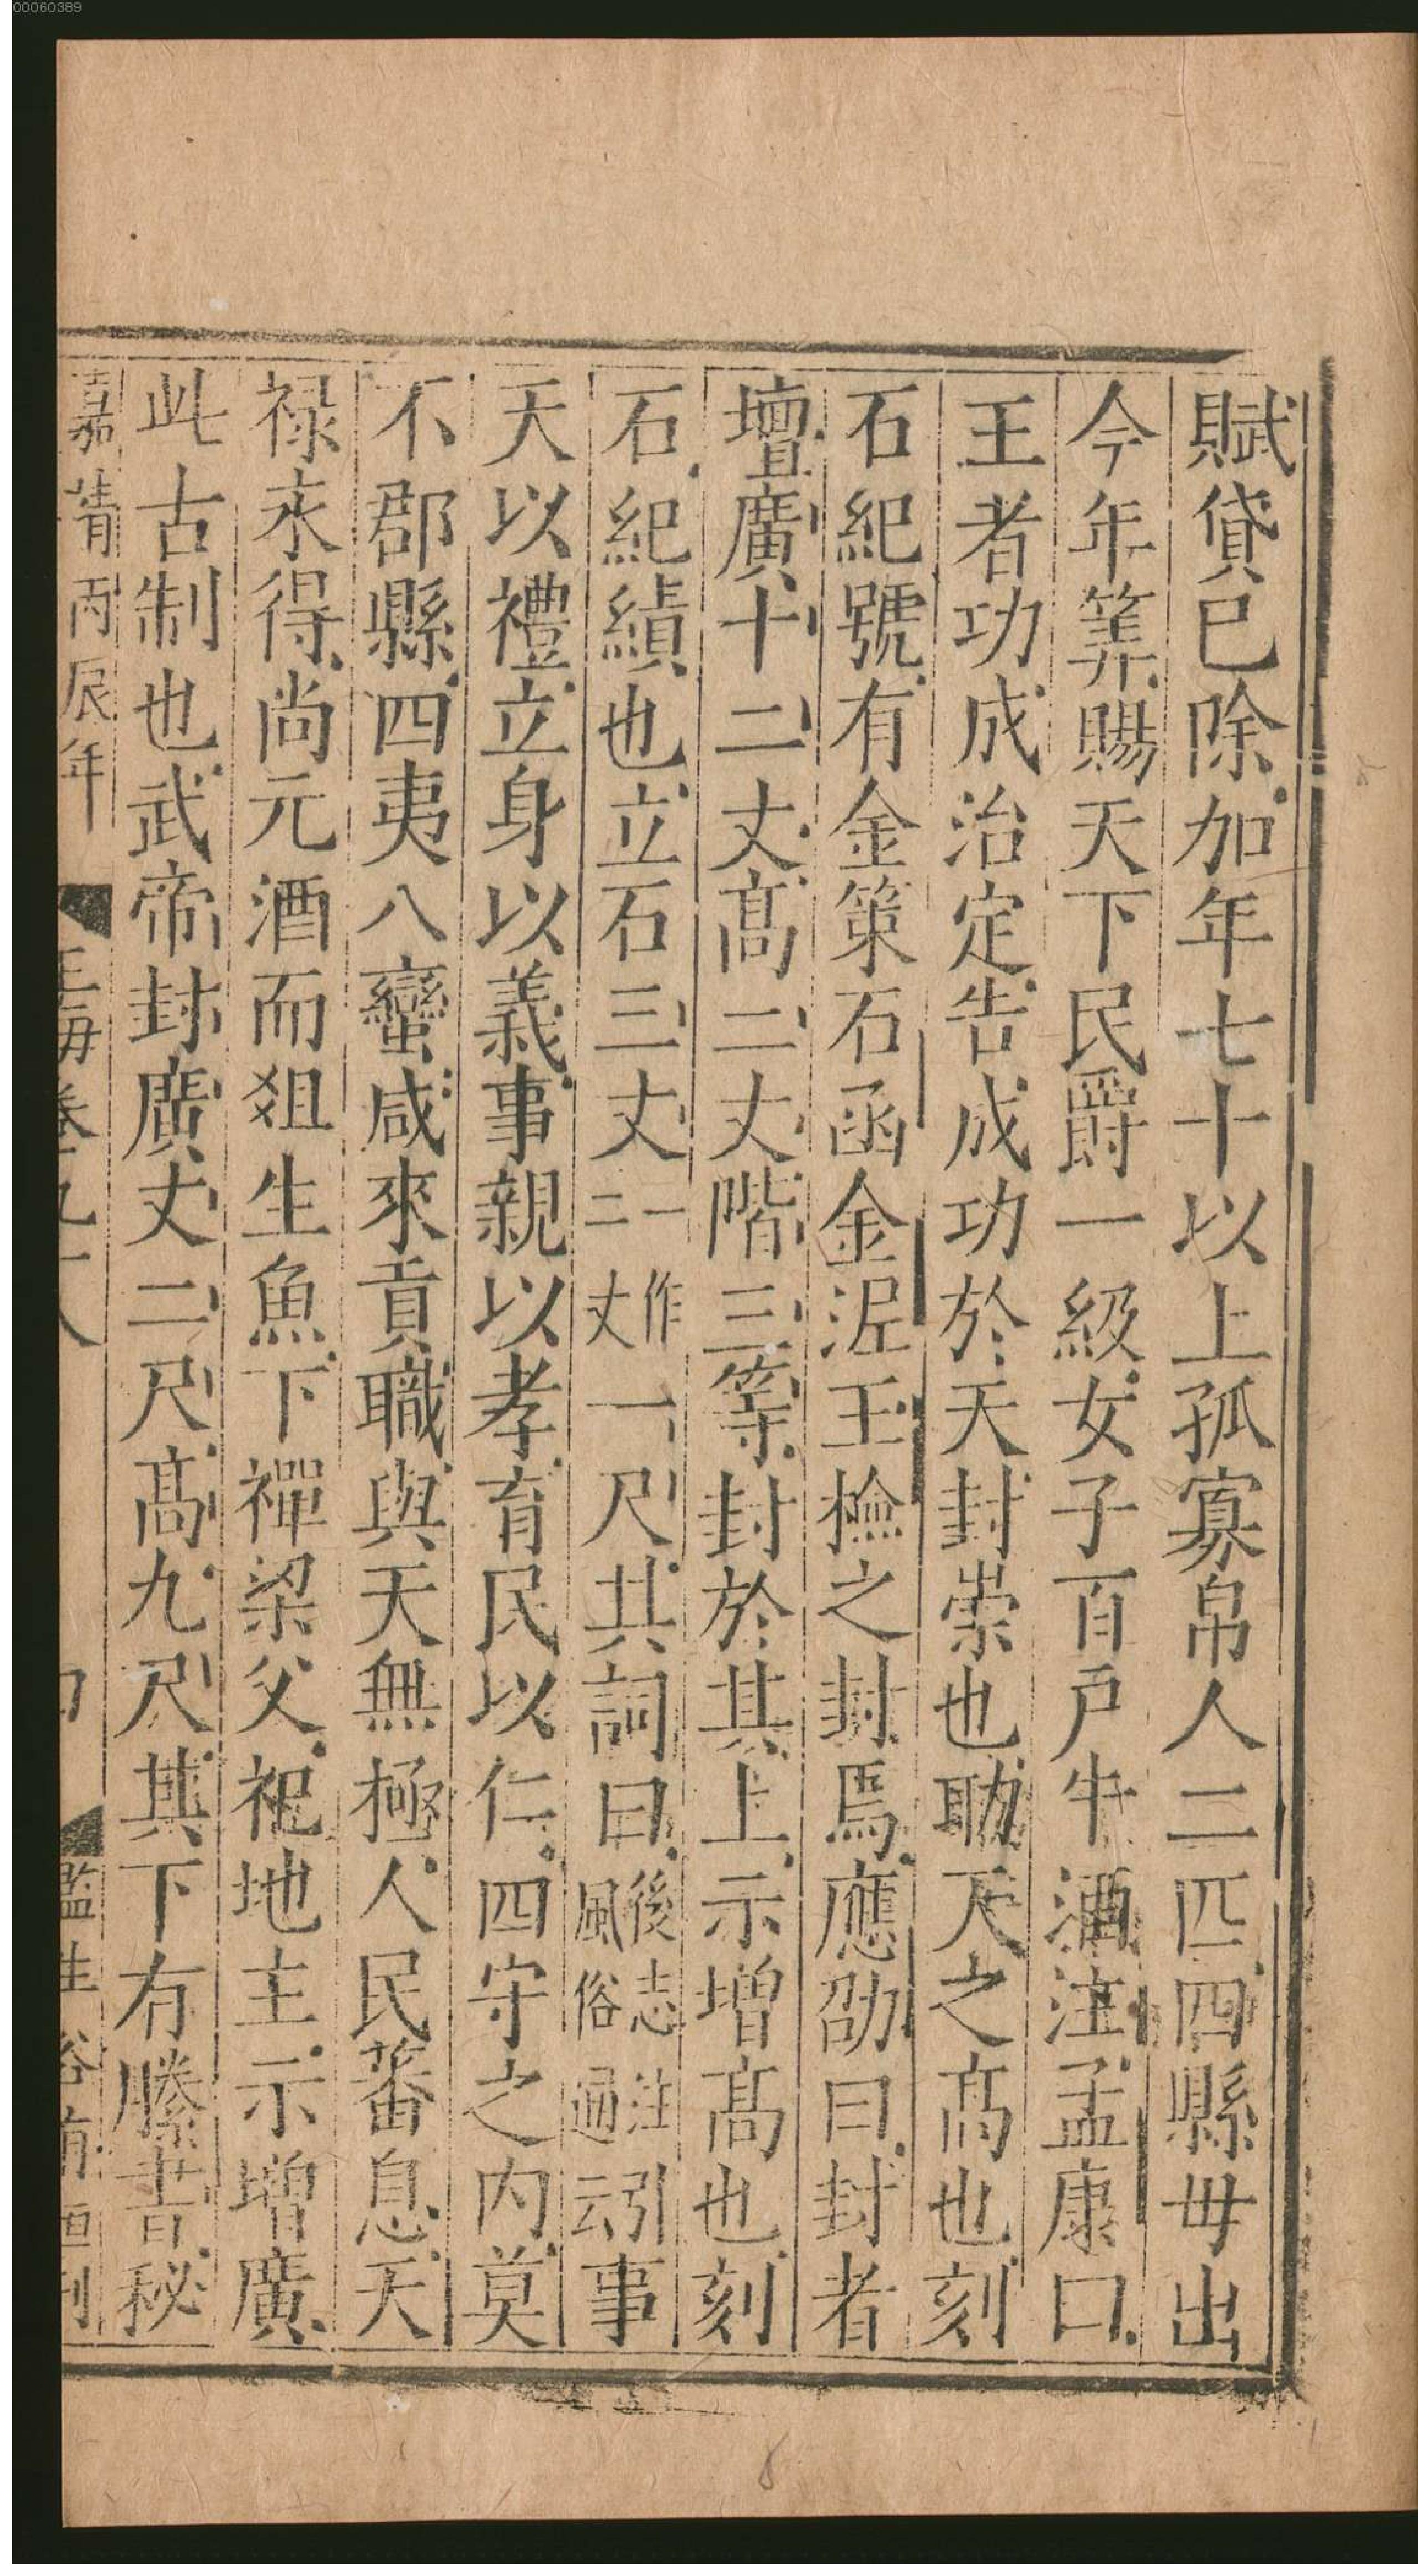 00060389
賦貸已除加年七十以上孤寡帛人二匹四縣毋出
今年筭賜天下民爵一級女子百戶牛酒注孟康曰
王者功成治定告成功於天封崇也助天之高也刻
石紀號有金策石函金泥玉檢之封焉應劭曰封者
壇廣十二丈高二丈階三等封於其上示增高也刻
石紀績也立石三丈一作二丈一尺其詞曰後志注引風俗通云事
天以禮立身以義事親以孝育民以仁四守之內莫
不郡縣四夷八蠻咸來貢職與天無極人民蕃息天
祿永得尚元酒而俎生魚下禪梁父祀地主示增廣
此古制也武帝封廣丈二尺高九尺其下有牓書秘
嘉靖丙辰年 玉海卷九十八 監生